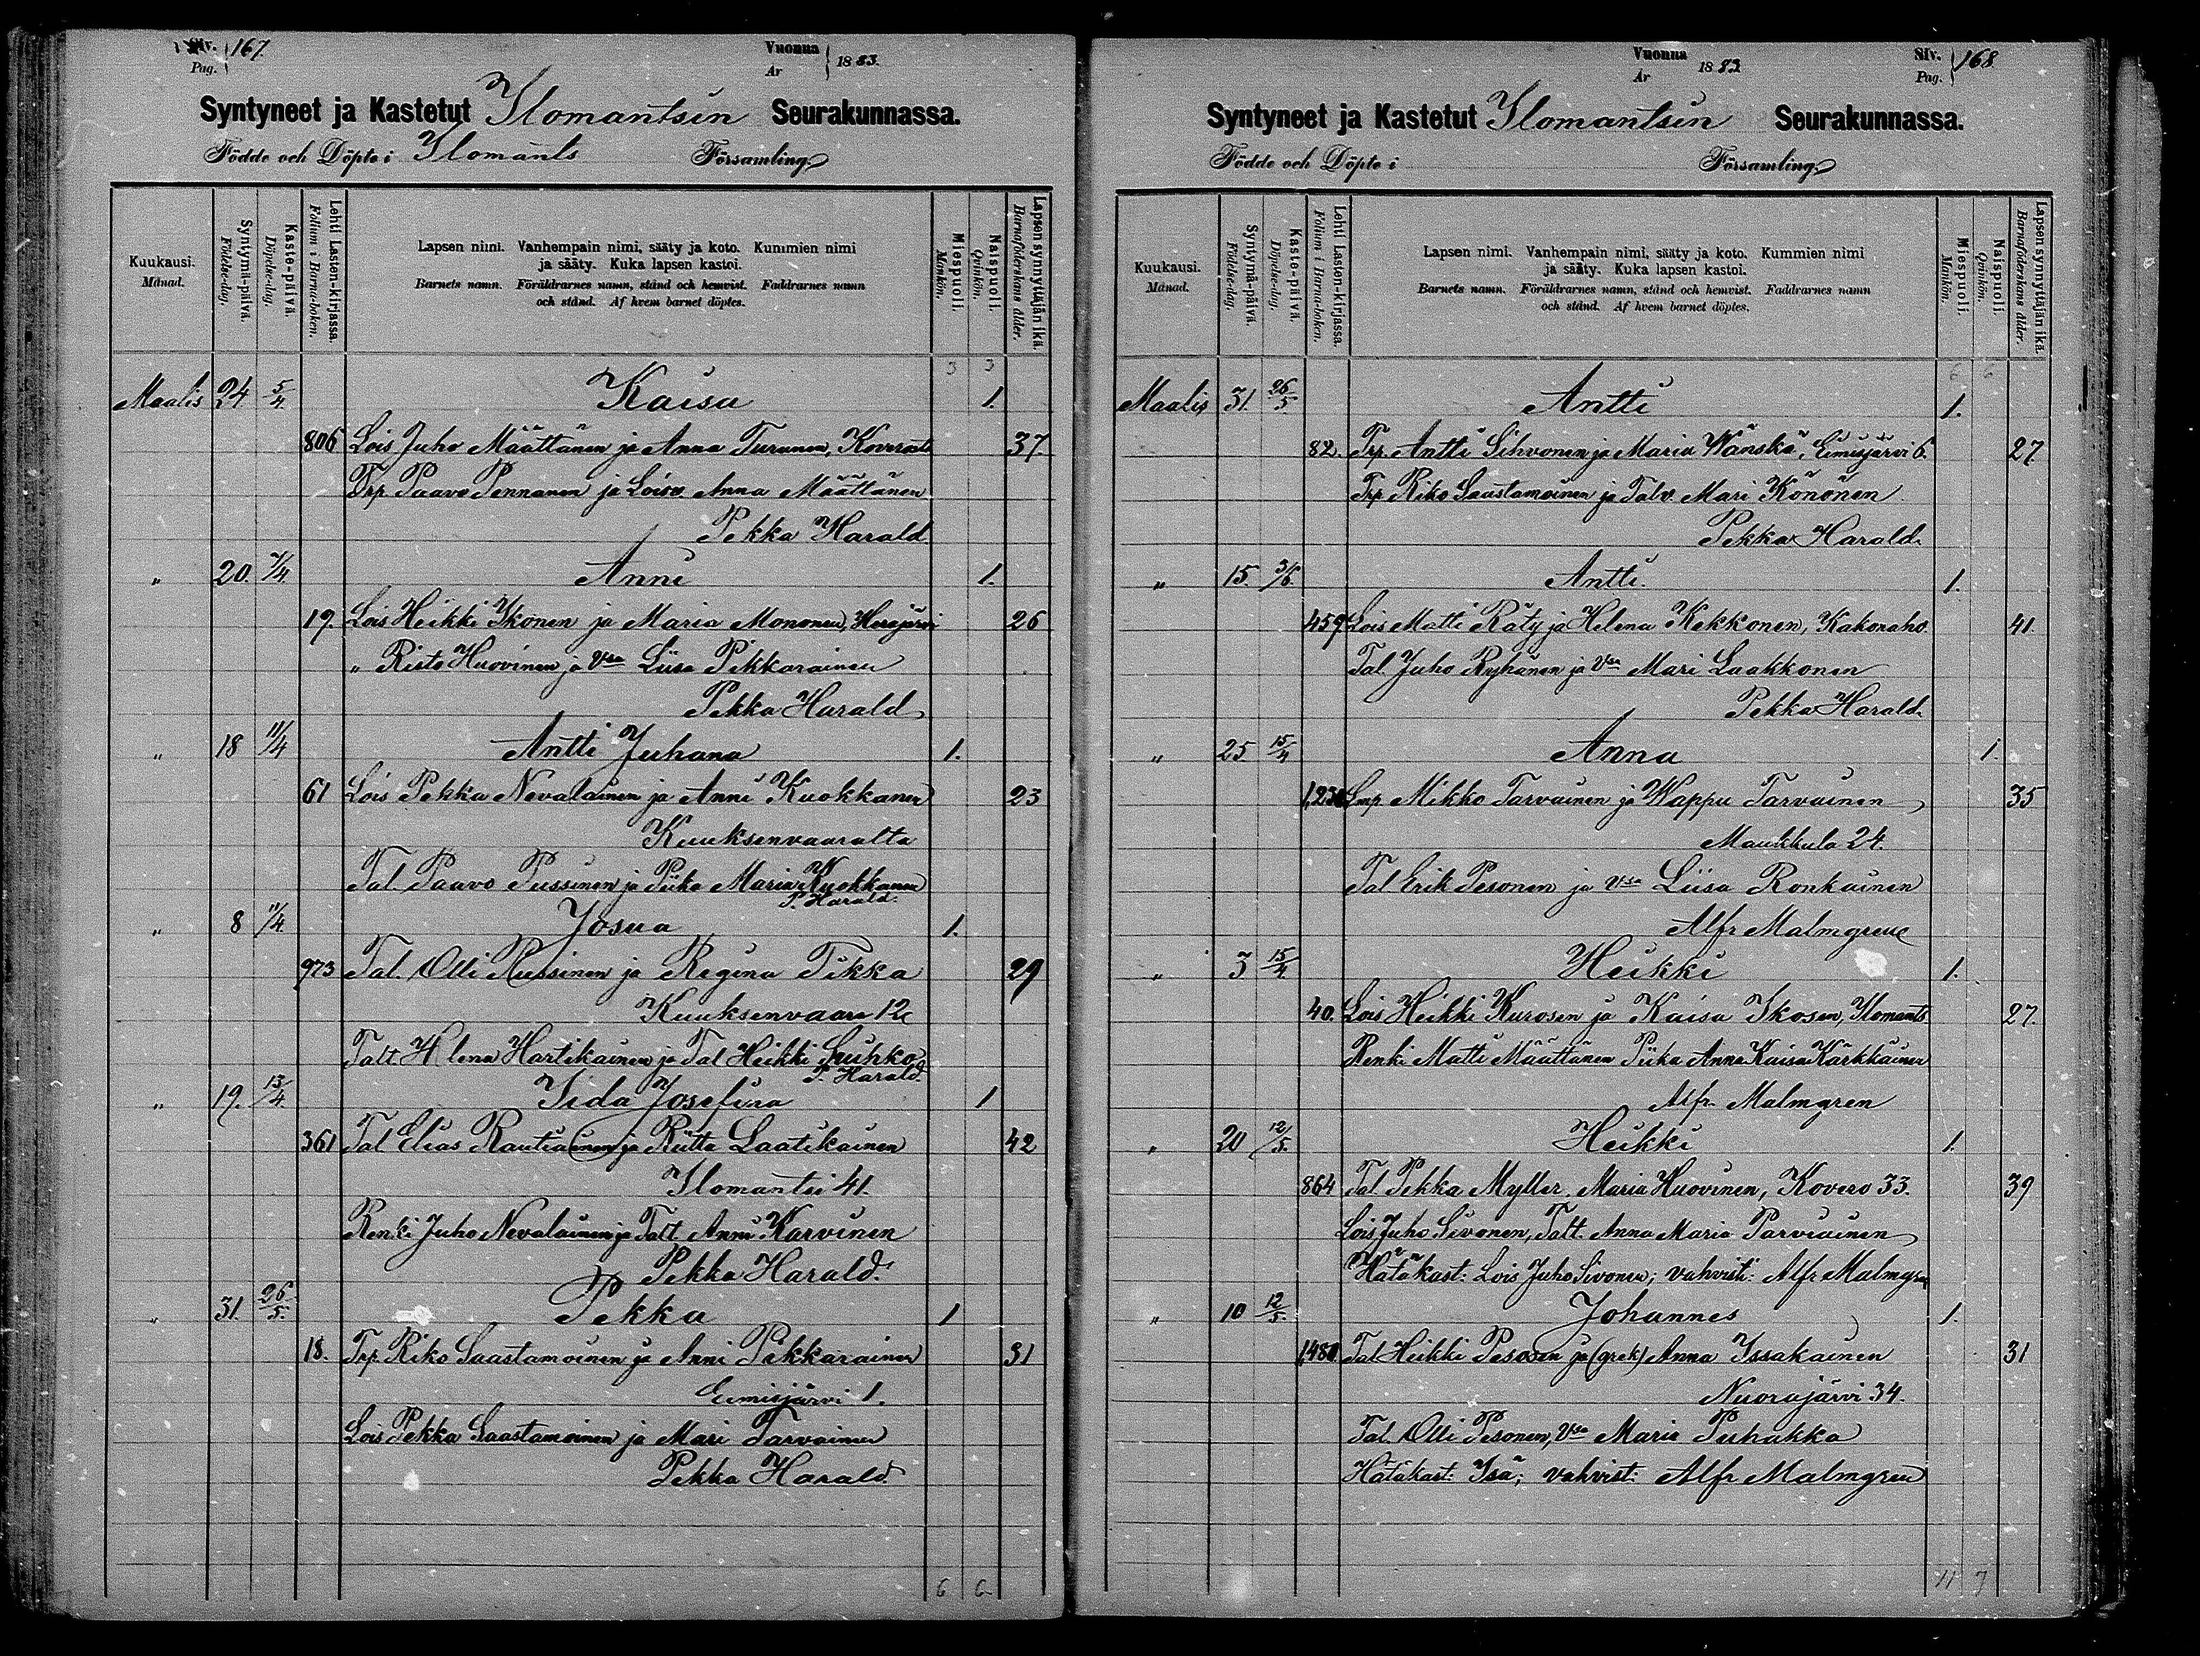 Siv. Pag. 167. Vuonna År 1883.
Syntyneet ja Kastetut Ilomantsin Seurakunnassa.
Födde och Döpte i Ilomants Församling.
Kuukausi. Månad.
Syntymä-päivä. Födelse-dag.
Kaste-päivä. Döpelse-dag.
Lehti Lasten-kirjassa. Folium i Barna-boken.
Lapsen nimi. Vanhempain nimi, sääty ja koto. Kummien nimi
ja sääty. Kuka lapsen kastoi.
Barnets namn. Föräldrarnes namn, stånd och hemvist. Faddrarnes namn
och stånd. Af hvem barnet döptes.
Miespuoli. Mankön.
Naispuoli. Qvinkön.
Lapsen synnyttäjän ikä. Barnaföderskans ålder.
3 3
Maalis 24 5/4. Kaisa 1.
806 Lois Juho Määttänen ja Anna Turunen, 37.
Trp Paavo Pennanen ja Loisv Anna Määttänen
Pekka Harald.
" 20. 7/4. Anni 1.
19. Lois Heikki Ikonen ja Maria Mononen, Herajärvi 26
" Risto Huovinen ja Vsa Liisa Pekkarainen
Pekka Harald
" 18 11/4 Antti Juhana 1.
61 Lois Pekka Nevalainen ja Anni Kuokkanen 23
Kuuksenvaaralta
Tal. Paavo Pussinen ja Piika Maria Kuokkanen
P. Harald.
" 8 11/4 Josua 1.
973 Tal. Olli Pussinen ja Regina Tikka 29
Kuuksenvaara 12
Talt. Helena Hartikainen ja Tal Heikki Suhko
P. Harald.
" 19. 13/4. Iida Josefina 1
361 Tal Elias Rautiainen ja Riitta Laatikainen 42
Ilomantsi 41.
Renki Juho Nevalainen ja Talt. Anni Karvinen
Pekka Harald.
" 31. 26/5. Pekka 1
18. Trp. Riko Saastamoinen ja Anni Pekkarainen 31
Eimisjärvi 1.
Lois Pekka Saastamoinen ja Mari Tarvainen
Pekka Harald.
6 6
Vuonna År 1883 Siv. Pag. 168
Syntyneet ja Kastetut Ilomantsin Seurakunnassa.
Födde och Döpte i Församling.
Kuukausi. Månad.
Syntymä-päivä. Födelse-dag.
Kaste-päivä. Döpelse-dag.
Lehti Lasten-kirjassa. Folium i Barna-boken.
Lapsen nimi. Vanhempain nimi, sääty ja koto. Kummien nimi
ja sääty. Kuka lapsen kastoi.
Barnets namn. Föräldrarnes namn, stånd och hemvist. Faddrarnes namn
och stånd. Af hvem barnet döptes.
Miespuoli. Mankön.
Naispuoli. Qvinkön.
Lapsen synnyttäjän ikä. Barnaföderskans ålder.
6 6
Maalis 31. 26/5 Antti 1.
82. Trp. Antti Sihvonen ja Maria Wänskä, Eimisjärvi 6. 27.
Trp Riko Saastamoinen ja Talv. Mari Könönen
Pekka Harald.
" 15. 3/6. Antti. 1.
459 Lois Matti Räty ja Helena Kekkonen, Kakonaho 41.
Tal. Juho Ryhänen ja Vsa Mari Laakkonen
Pekka Harald.
" 25 15/4 Anna 1.
Lmp Mikko Tarvainen ja Wappu Tarvainen 35
Maukkula 24.
Tal Erik Pesonen ja Vsa Liisa Ronkainen
Alfr Malmgren
" 3 15/4. Heikki 1.
40. Lois Heikki Kurosen ja Kaisa Ikosen, Ilomants 27.
Renki Matti Määttänen Piika Anna Kaisa Kärkkäinen
Alfr. Malmgren
" 20 12/5. Heikki 1.
864 Tal. Pekka Myller, Maria Huovinen, Kovero 33. 39
Lois Juho Sivonen, Talt. Anna Maria Parviainen
Hätäkast: Lois Juho Sivonen; vahvisti: Alfr Malmgren
" 10 12/5. Johannes 1.
Tal Heikki Pesosen ja (grek) Anna Issakainen 31
Nuorajärvi 34.
Tal. Olli Pesonen, Vsa Maria Puhakka
Hätäkast: Isä; vahvist: Alfr Malmgren
11 7